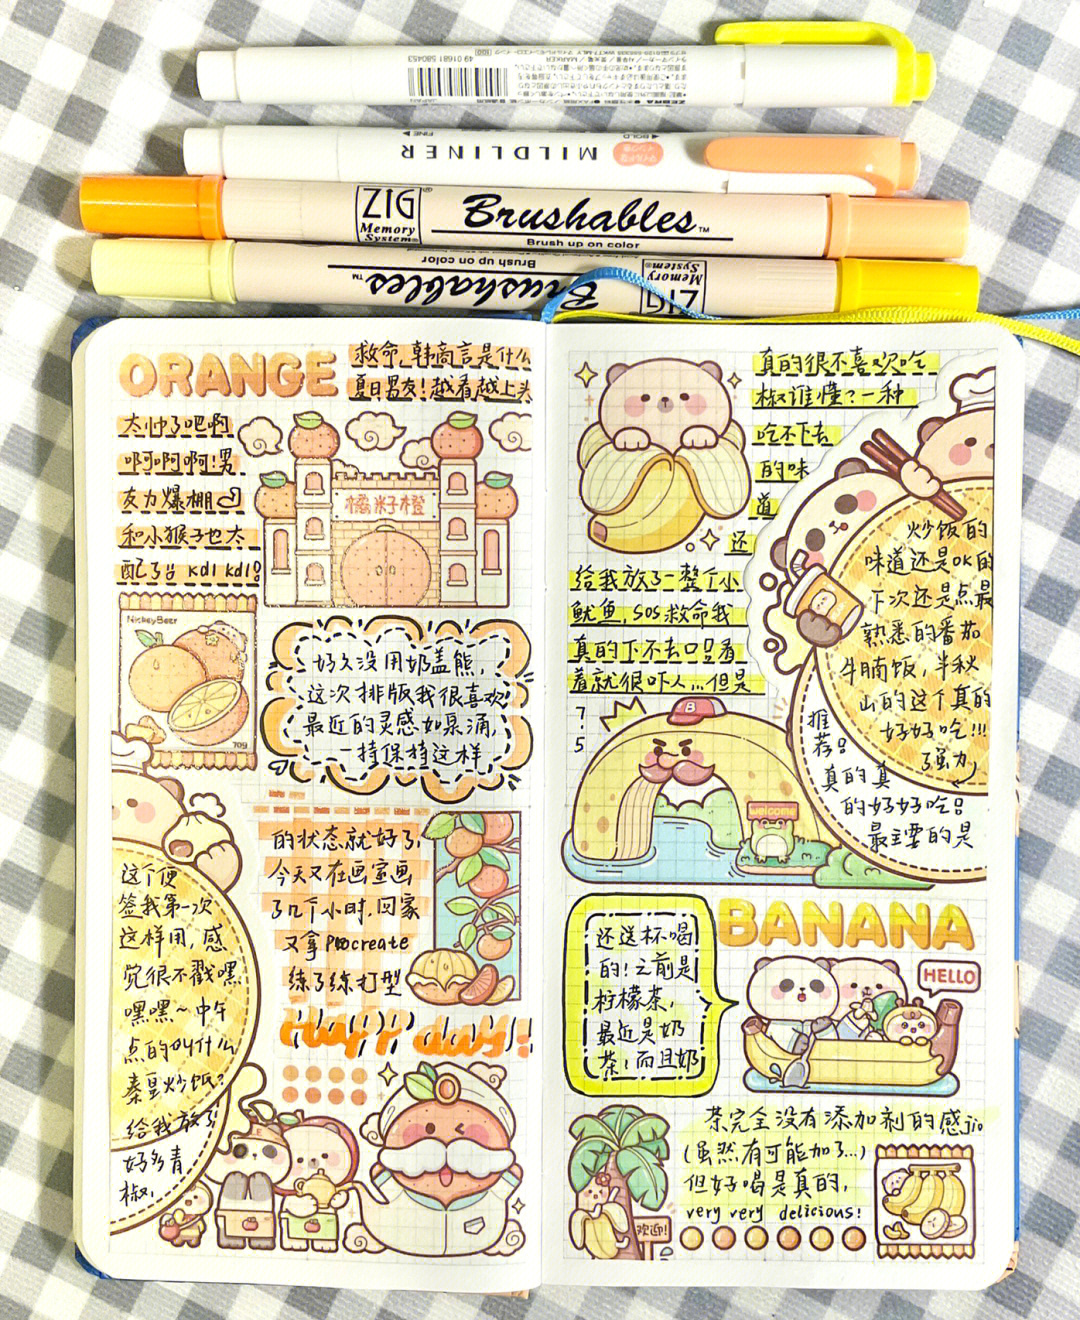 49 01681 580453
ZEBRA
MARKER
JAPAN
FINE
BOLD
MILDLINER
ZIG
Memory
System®
Brushables™
Brush up on color
ZIG
Memory
System®
Brushables™
Brush up on color
ORANGE
救命,韩商言是什么
夏日男友!越看越上头
太帅了吧啊
啊啊啊啊!男
友力爆棚
和小猴子也太
配了吕 kdl kdl!
橘籽橙
NickeyBeer
70g
好久没用奶盖熊,
这次排版我很喜欢
最近的灵感如泉涌,
一持保持这样
的状态就好了,
今天又在画室画
了几个小时,回家
又拿Procreate
练了练打型
Happy day!!
这个便
签我第一次
这样用,感
觉很不戳嘿
嘿嘿~中午
点的叫什么
秦皇炒饭?
给我放了
好多青
椒,
真的很不喜欢吃
椒谁懂?一种
吃不下去
的味
道
还
给我放了一整个小
鱿鱼,SOS救命我
真的下不去口只看
着就很吓人...但是
7
.
5
炒饭的
味道还是OK的
下次还是点最
熟悉的番茄
牛腩饭,半秋
山的这个真的
好好吃!!!
强力
推
荐!
真的真
的好好吃!
最主要的是
B
welcome
BANANA
HELLO
还送杯喝
的!之前是
柠檬茶,
最近是奶
茶!而且奶
茶完全没有添加剂的感jio
(虽然有可能加了...)
但好喝是真的,
very very delicious!
欢迎!